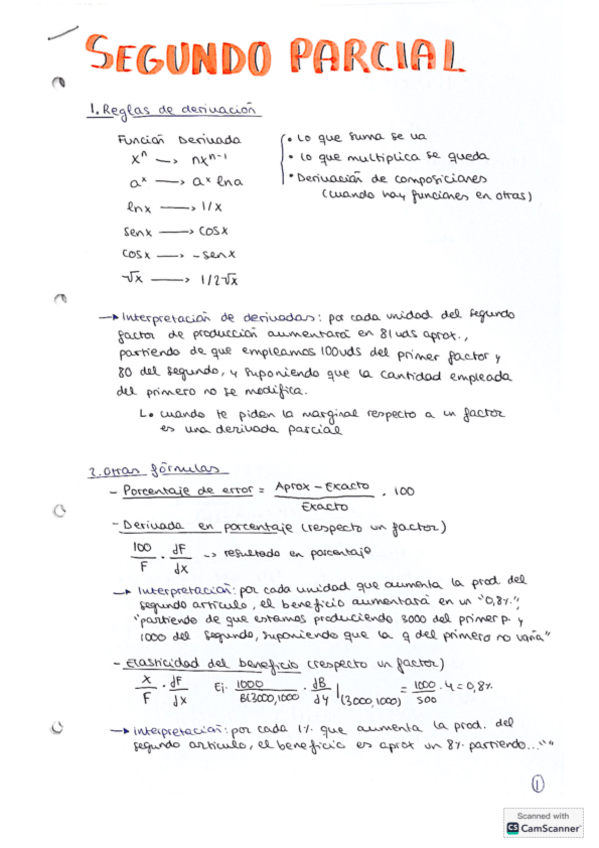 SEGUNDO PARCIAL
1. Reglas de derivación
Función Derivada
xⁿ → nxⁿ⁻¹
aˣ → aˣ lna
lnx → 1/x
senx → cosx
cosx → -senx
√x → 1/2√x
• Lo que suma se va
• Lo que multiplica se queda
• Derivación de composiciones
(cuando hay funciones en otras)
→ Interpretación de derivadas: por cada unidad del segundo
factor de producción aumentará en 81uds aprox.,
partiendo de que empleamos 100uds del primer factor y
80 del segundo, y suponiendo que la cantidad empleada
del primero no se modifica.
L• cuando te piden la marginal respecto a un factor
es una derivada parcial
2. Otras fórmulas
- Porcentaje de error = Aprox - Exacto / Exacto . 100
- Derivada en porcentaje (respecto un factor)
100/F . dF/dx → resultado en porcentaje
→ Interpretación: por cada unidad que aumenta la prod. del
segundo artículo, el beneficio aumentará en un "0,8%",
"partiendo de que estamos produciendo 3000 del primer p. y
1000 del segundo, suponiendo que la q del primero no varía"
- Elasticidad del beneficio (respecto un factor)
x/F . dF/dx Ej. 1000/B(3000,1000 . dB/dy |(3000,1000) = 1000/500 . 4 = 0,8%
→ interpretación: por cada 1% que aumenta la prod. del
segundo artículo, el beneficio es aprox un 8% partiendo..."
1
Scanned with
CS CamScanner